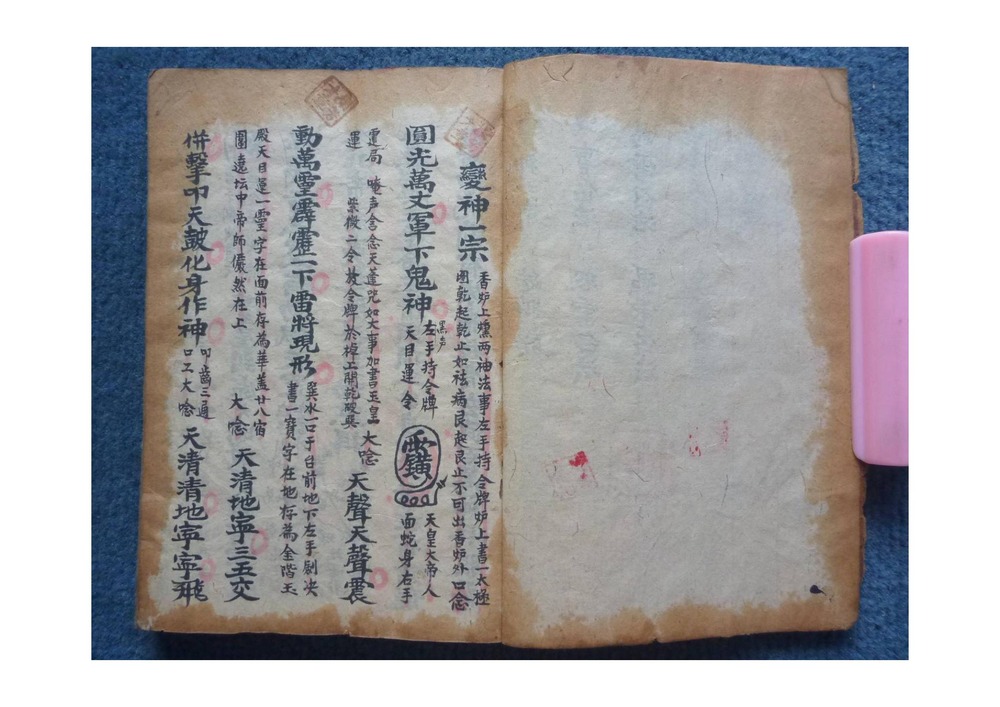 變神一宗 香炉上燻兩袖法事左手持令牌炉上書一太極
圈乾起乾止如祛病艮起艮止不可出香炉外口念
圓光萬丈軍下鬼神 左手持令牌 天皇大帝人
天目運令 面蛇身右手
運局 唵声含念天蓬咒如大事加書玉皇 大唸 天聲天聲震
運 紫微二令放令牌於棹上開乾破巽
動萬靈霹靂一下雷將現形 巽水一口于台前地下左手剔决
書一寶字在地存為金階玉
殿天目運一靈字在面前存為華盖廿八宿
圍遶坛中帝師儼然在上 大唸 天清地寧三五交
併擊叩天鼓化身作神 叩齒三通
口工大唸 天清清地寧寧飛